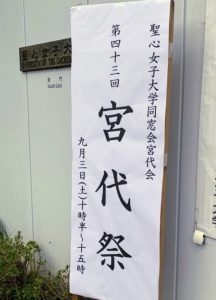 聖心女子大学同窓会宮代会
第四十三回
宮代祭
九月三日(土)十時半~十五時
聖心女子大
UNIVERSITY OF THE SACRED
南門
South Gate